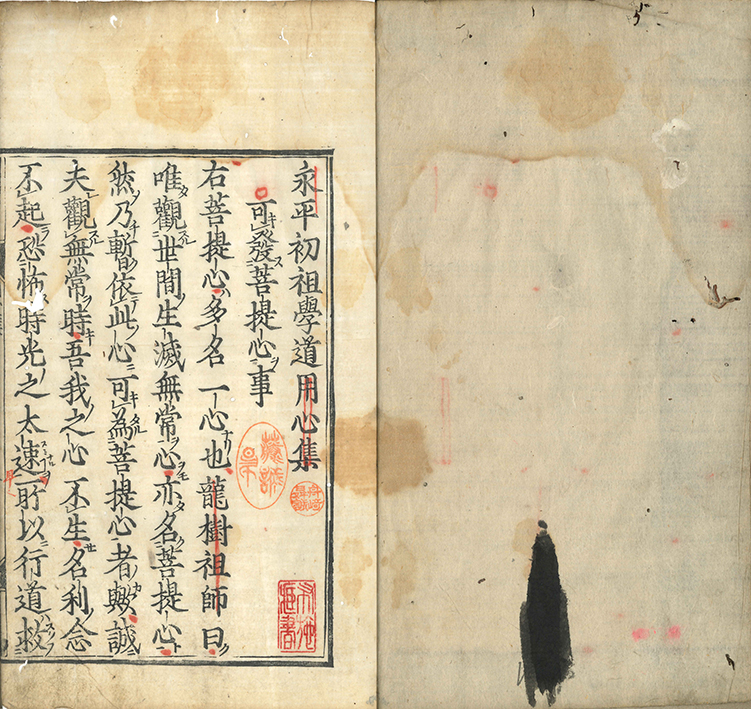 永平初祖學道用心集
可發菩提心事
右菩提心多名一心也龍樹祖師曰
唯觀世間生滅無常心亦名菩提心
然乃暫依此心可為菩提心者歟誠
夫觀無常時吾我之心不生名利念
不起恐怖時光之太速所以行道救